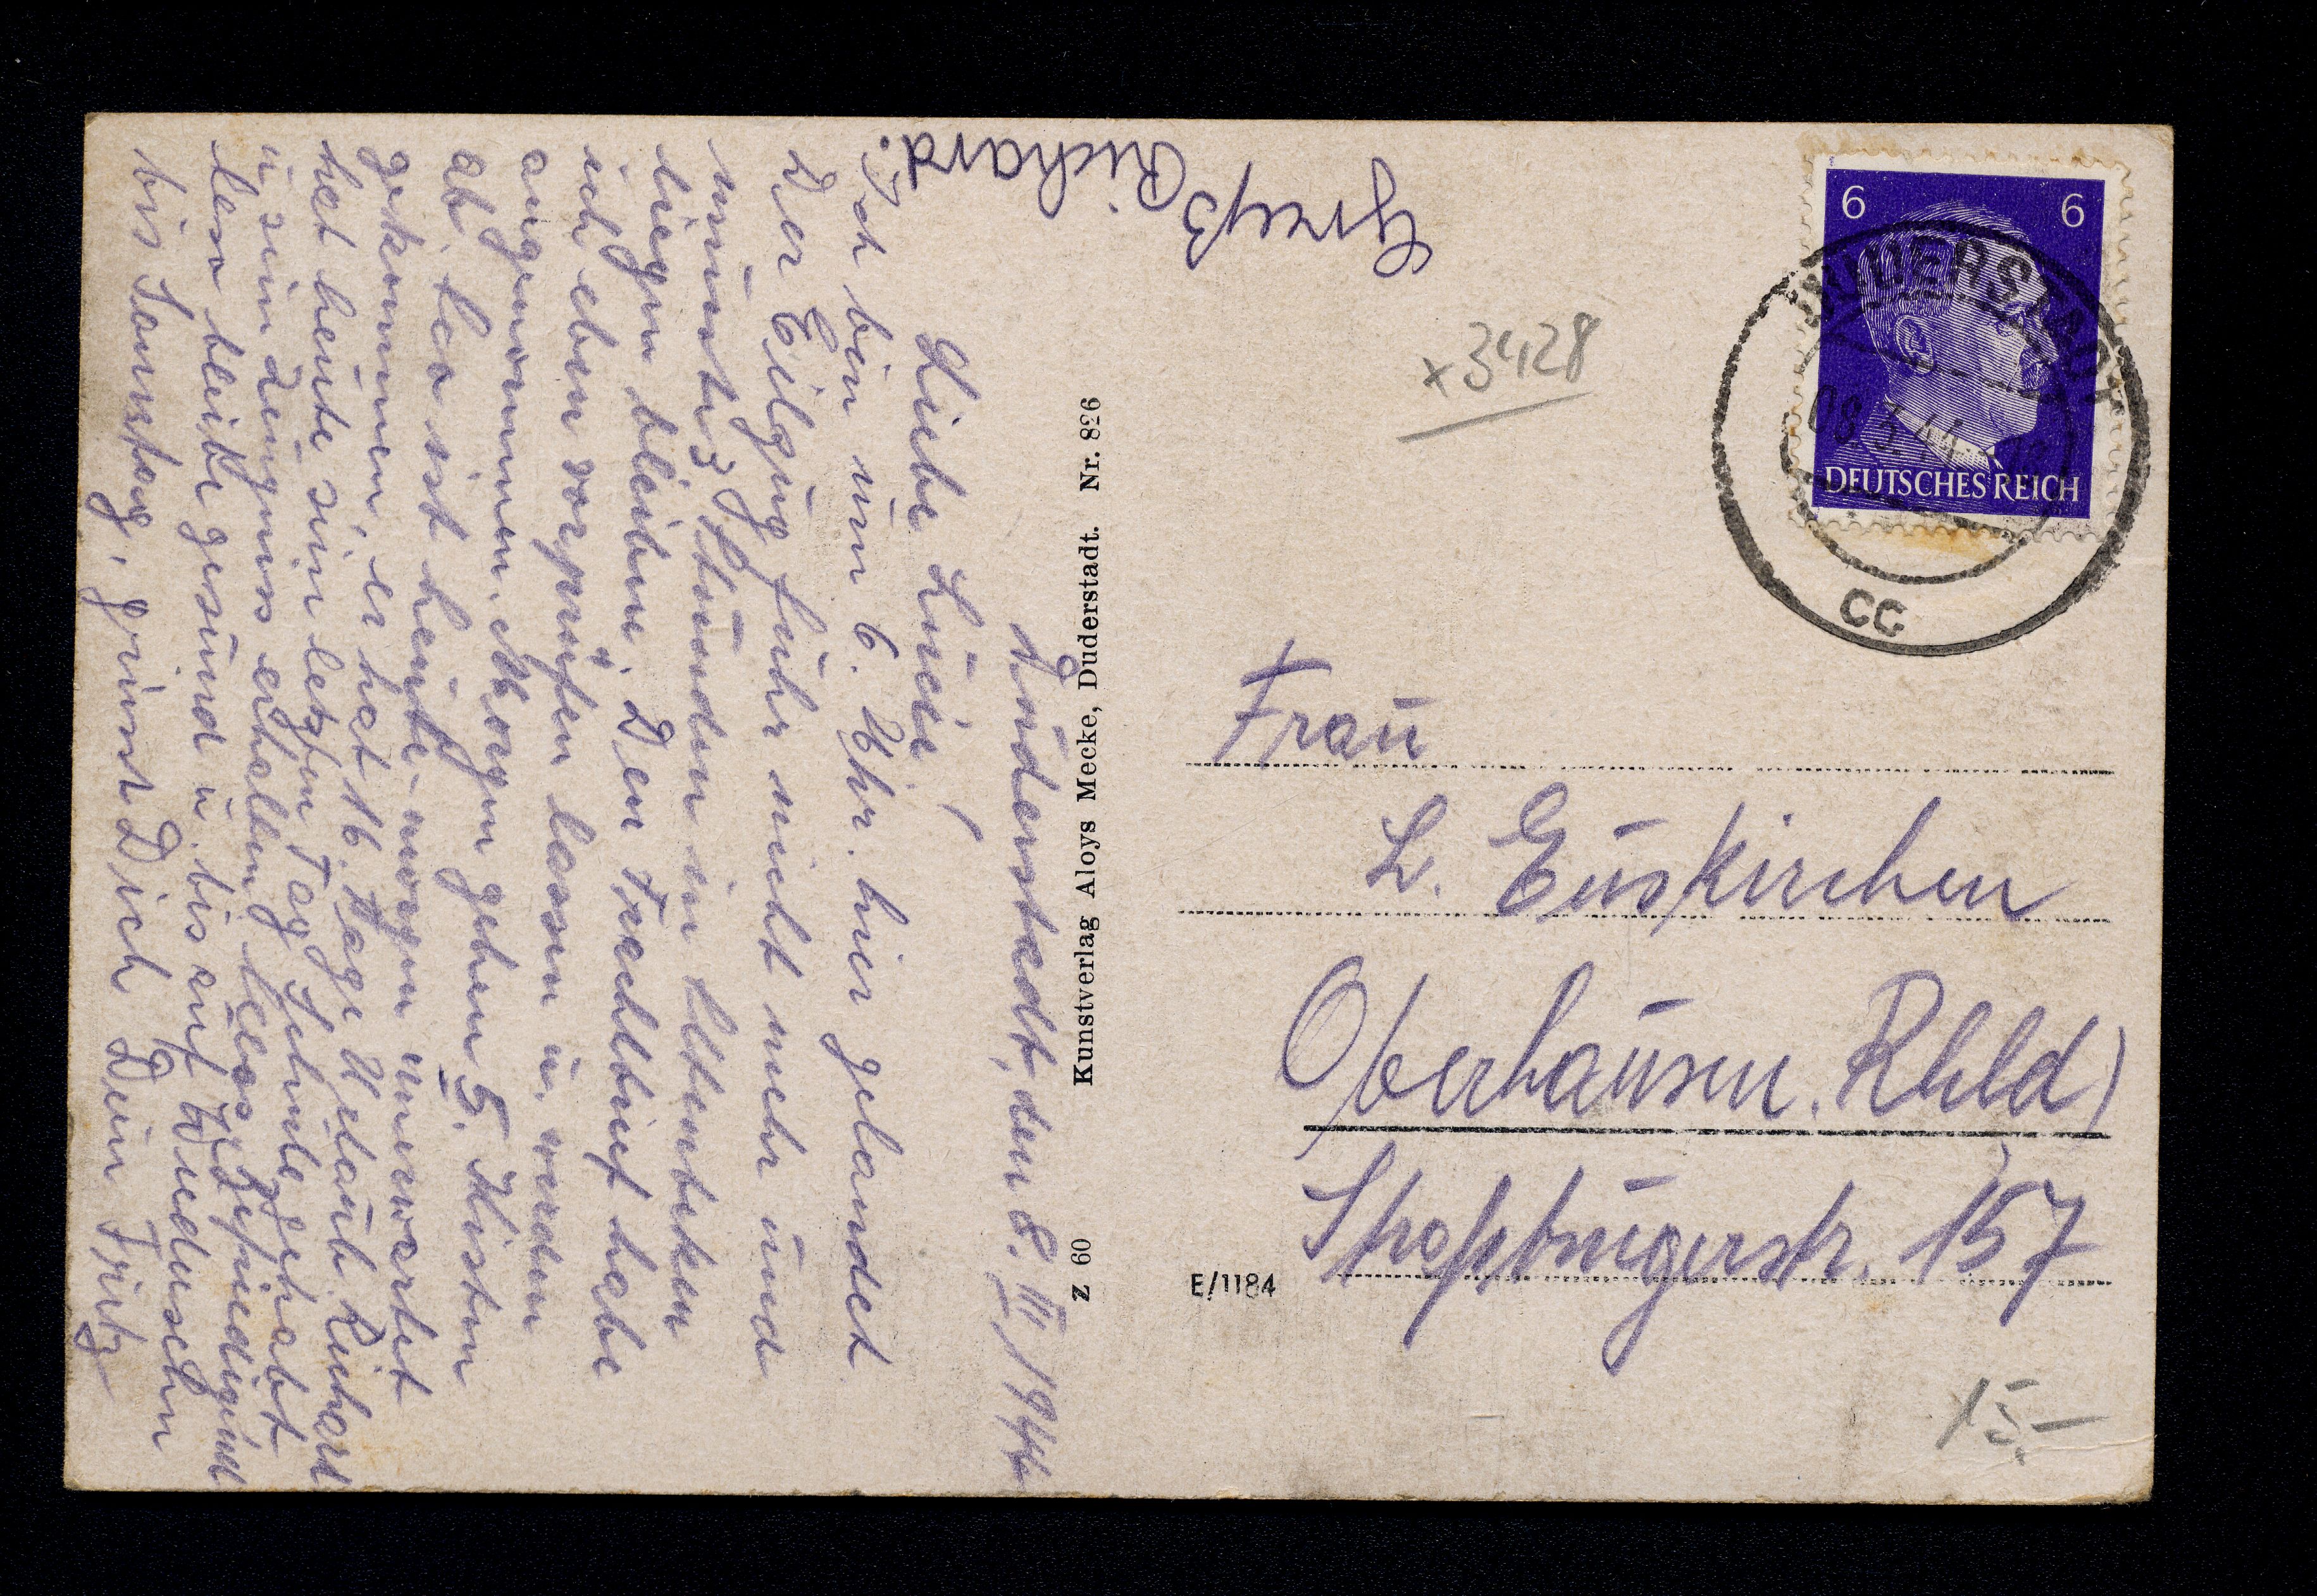 Duderstadt, den 8. III. 1944
Liebe Lucie!
Ich bin um 6. Uhr. hier gelandet
Der Eilzug fuhr nicht mehr und
musste 3 Stunden in Altenbeken
liegen bleiben. Den Frachtbrief habe
ich eben vorprüfen lassen u. werden
angenommen. Morgen gehen 5. Kisten
ab. Leo ist heute morgen unerwartet
gekommen, er hat 16. Tage Urlaub. Richard
hat heute sein letzten Tag Schule gehabt
u. sein Zeugnis erhalten
bleibe gesund u. bis auf Wiedersehn
bis Samstag, grüsst Dich Dein Fritz
Gruß
Richard.
Kunstverlag Aloys Mecke, Duderstadt. Nr. 826
Z 60
x 3428
6 6
DEUTSCHES REICH
DUDERSTADT
08.3.44
CC
Frau
L. Euskirchen
Oberhausen. Rhld)
157
E/1184
15.-